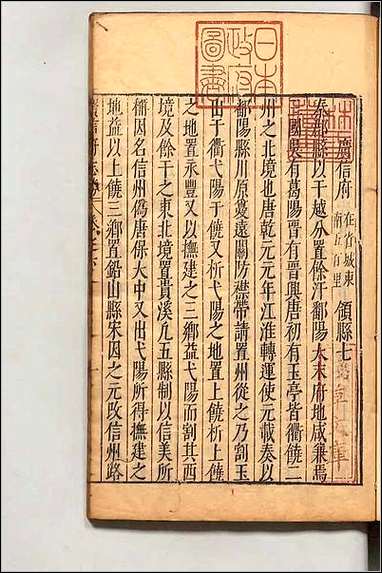 日本
政府
圖書
廣信府 在省城東南五百里 領縣七
秦鄱縣以干越分置餘汗鄱陽太末府地咸兼焉
三國吳有葛陽晉有晉興唐初有玉亭皆衢饒二
州之北境也唐乾元元年江淮轉運使元載奏以
鄱陽縣川原夐遠關防襟帶請置州從之乃割玉
山于衢弋陽于饒又析弋陽之地置上饒析上饒
之地置永豐又以撫建之三鄉益弋陽而割其西
境及餘干之東北境置貴溪凡五縣制以信美所
稱因名信州偽唐保大中又出弋陽所得撫建之
地益以上饒三鄉置鉛山縣宋因之元改信州路